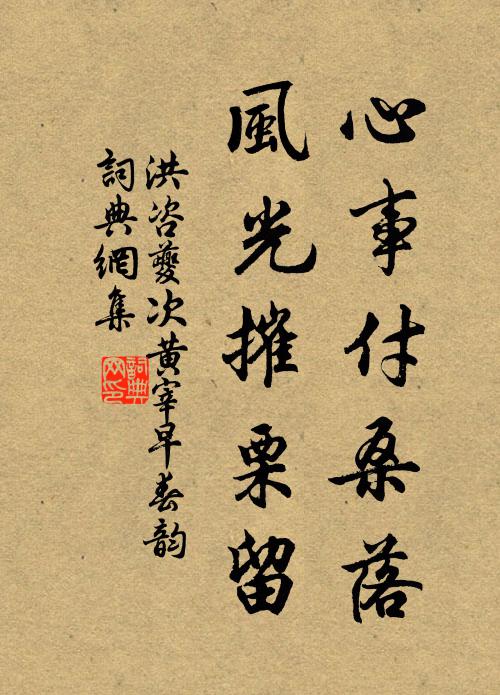 心事付桑落
風光摧栗留
洪咨夔次黄宰早春韵
詞典網集
詞典網印